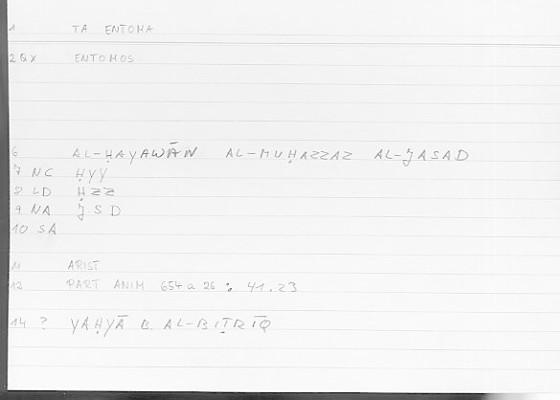 1 TA ENTOMA
2 QX ENTOMOS
6 AL-ḤAYAWĀN AL-MUḤAZZAZ AL-JASAD
7 NC ḤYY
8 LD ḤZZ
9 NA JSD
10 SA
11 ARIST
12 PART ANIM 654a 26 : 41.23
14 ? YAḤYĀ B. AL-BIṬRĪQ